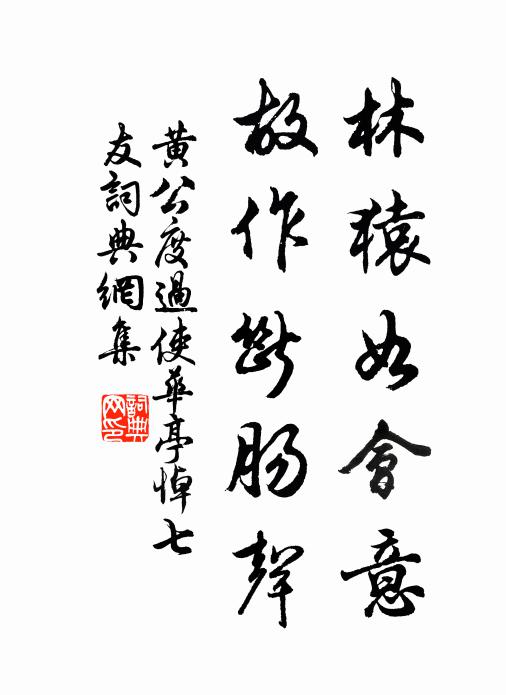 林猿如會意
故作斷腸聲
黃公度過使華亭悼七
友詞典網集
詞典網印